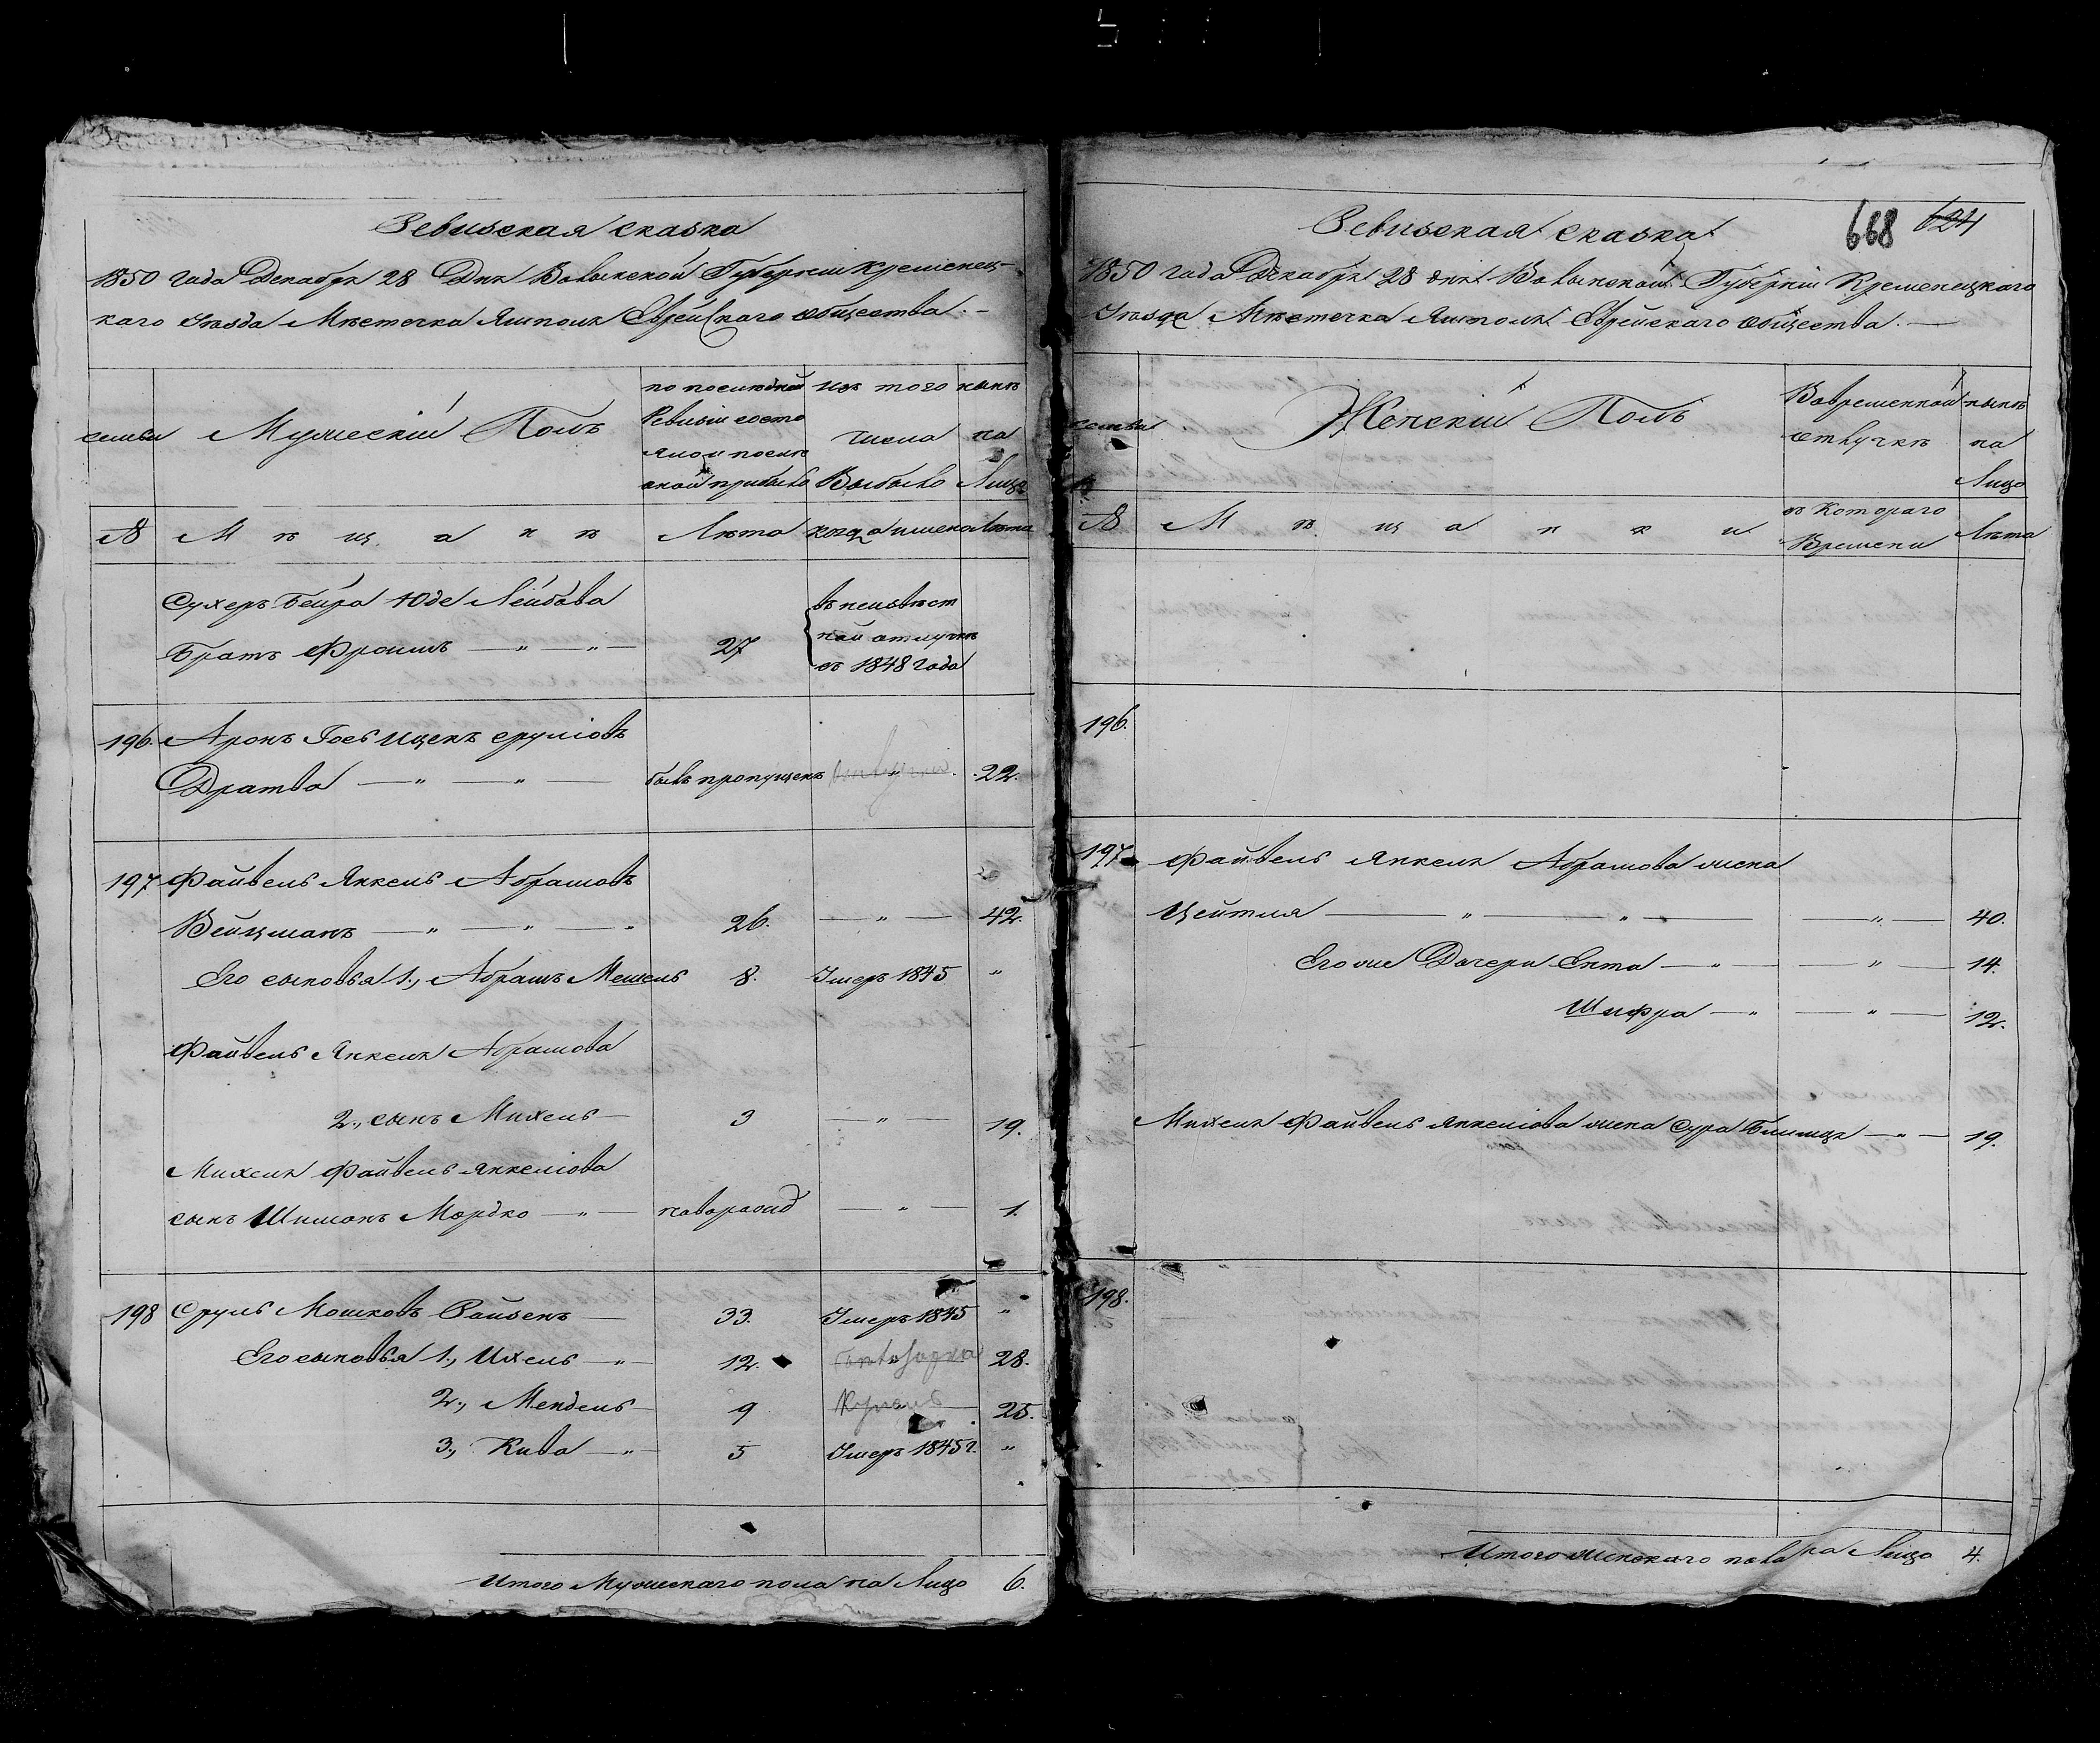 Ревизская сказка
1850 года Декабря 28 Дня Волынской Губернии Кременец-
каго Уѣзда Мѣстечка Ямполя Еврейскаго общества. —
семьи
Мужескій Полъ
по послѣдней
Ревизіи состо
яло и послѣ
оной прибыло
изъ того
числа
Выбыло
нынѣ
на
Лицо
№
М ѣ щ а н ѣ
Лѣта
когда именно
Лѣта
Сухеръ Бейра Юде Лейбова
Братъ Фроимъ — „ — „ — 27
въ неизвѣст
ной отлучкѣ
съ 1848 года
196. Аронъ Іось Ицекъ Сруліовъ
Дратва — „ — „ — былъ пропущенъ „ 22.
197 Файвель Янкель Абрамовъ
Вейцманъ — „ — „ — „ 26. — „ — 42.
Его сыновья 1., Абрамъ Мешель 8. Умеръ 1845 „
Файвель Янкеля Абрамова
2., сынъ Михель — 3 — „ — 19.
Михеля Файвель Янкеліова
сынъ Шимонъ Мордко — „ — новорожд — „ — 1.
198 Сруль Мошковъ Ройзенъ — 33. Умеръ 1845 „
Его сыновья 1., Ихель — „ — 12. 28.
2., Мендель — 9 25.
3., Кива — „ — 5 Умеръ 1845 г. „
Итого Мужескаго пола на Лицо 6.
Ревизская сказка
668 624
1850 года Декабря 28 дня Волынской Губерніи Кременецкаго
Уѣзда Мѣстечка Ямполя Еврейскаго общества. —
семьи
Женскій Полъ
Вовременной
отлучкѣ
нынѣ
на
Лицо
№
М ѣ щ а н к и
съ Котораго
Времени
Лѣта
196.
197 Файвель Янкеля Абрамова жена
Цейтля — „ — „ — — „ — 40.
Его же Дочери Ента — „ — — „ — 14.
Шифра — „ — „ — 12.
Михеля Файвель Янкеліова жена Сура Блимця — „ — 19.
198.
Итого женскаго пола на Лицо 4.